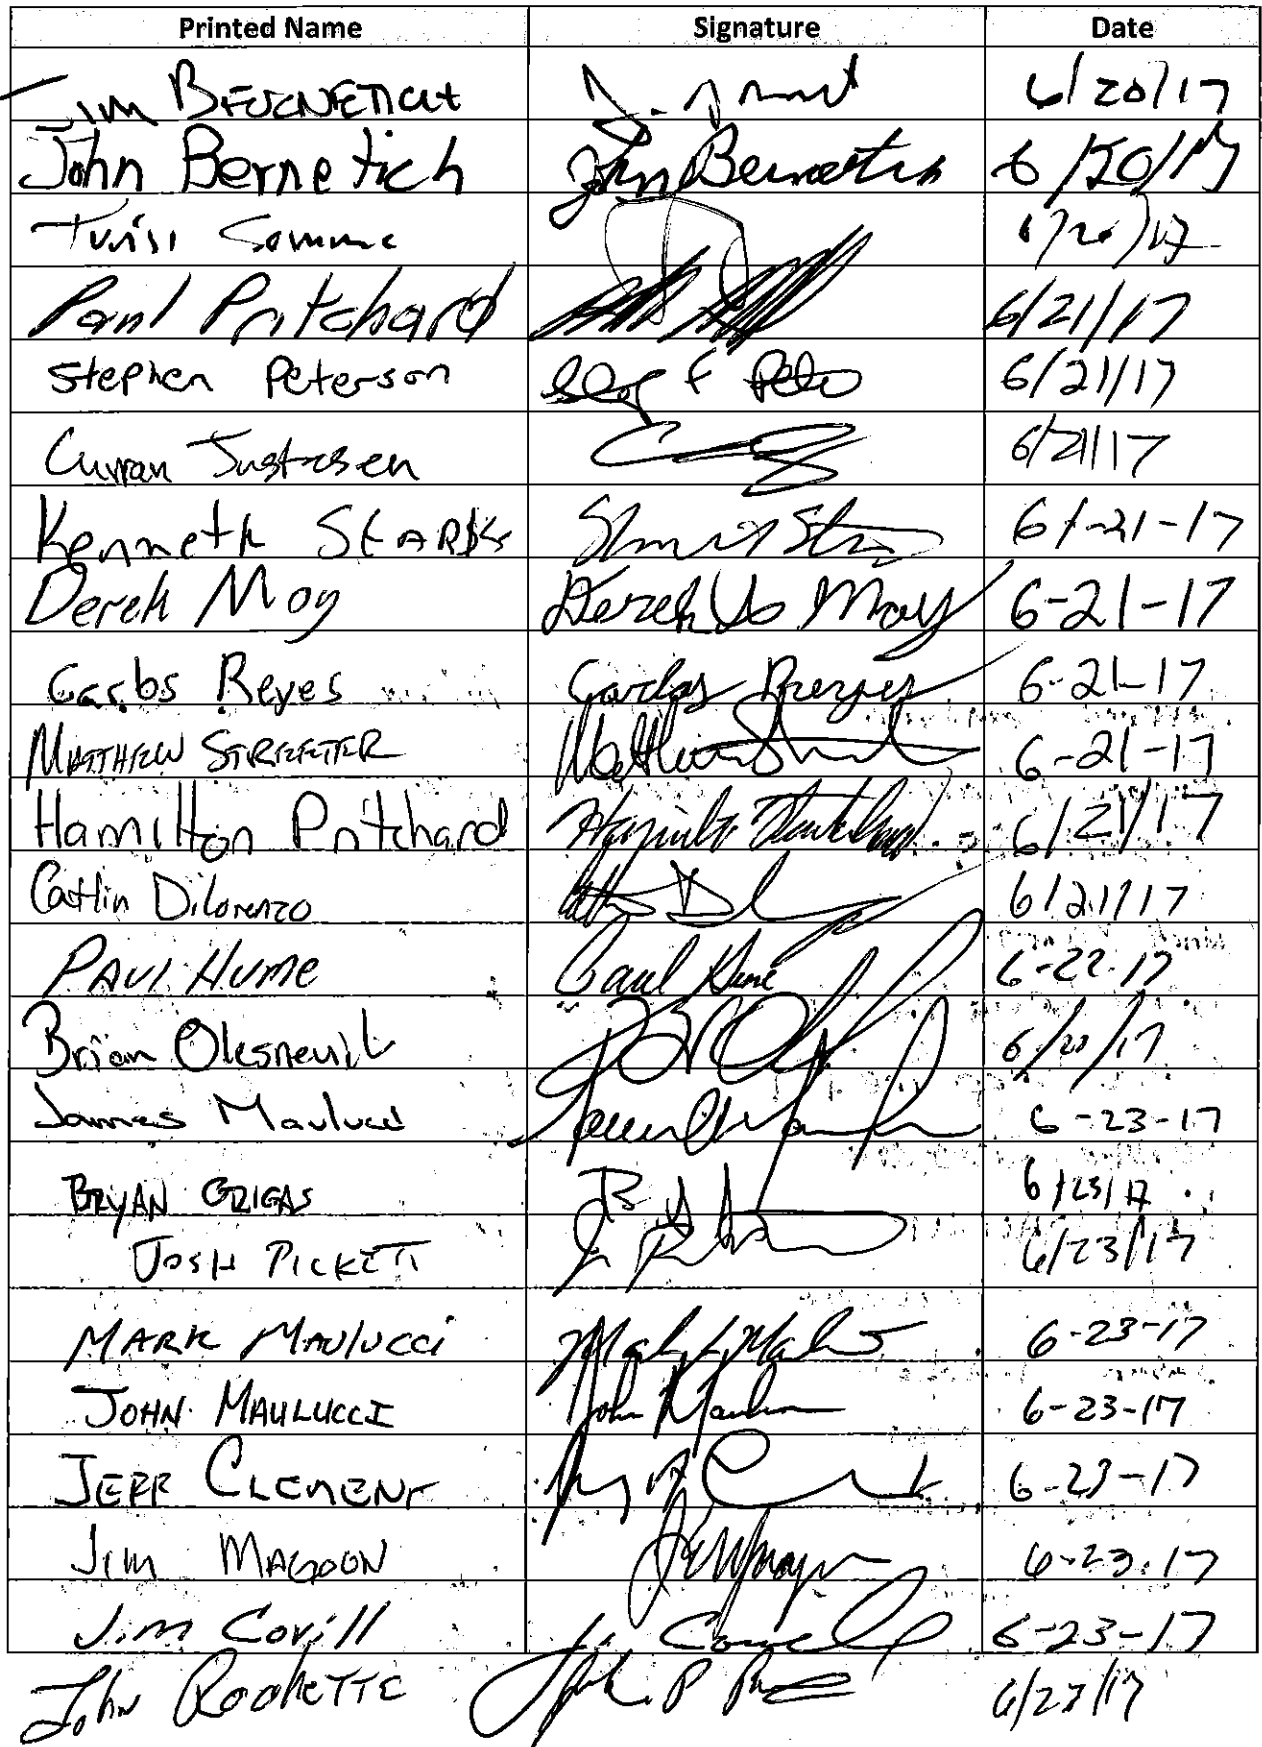 Printed Name Signature Date
Jim 6/20/17
John Bernetich John Bernetich 6/20/17
/20/17
Paul Pritchard 6/21/17
Stephen Peterson 6/21/17
Curran Justesen 6/21/17
Kenneth Starks 6/-21-17
Derek Moy Derek Moy 6-21-17
Carlos Reyes Carlos Reyes 6-21-17
Matthew Streeter Matthew 6-21-17
Hamilton Pritchard Hamilton Pritchard 6/21/17
Catlin DiLorenzo 6/21/17
PAUL HUME Paul Hume 6-22-17
Brian Olesneuil 6/20/17
James Maulucci 6-23-17
BRYAN GRIGAS 6/23/17
JOSH PICKETT 6/23/17
MARK MAULUCCI 6-23-17
JOHN MAULUCCI John 6-23-17
JEFF CLEMENT 6-23-17
JIM MAGOON 6-23-17
Jim Covill 6-23-17
John Rochette 6/23/17